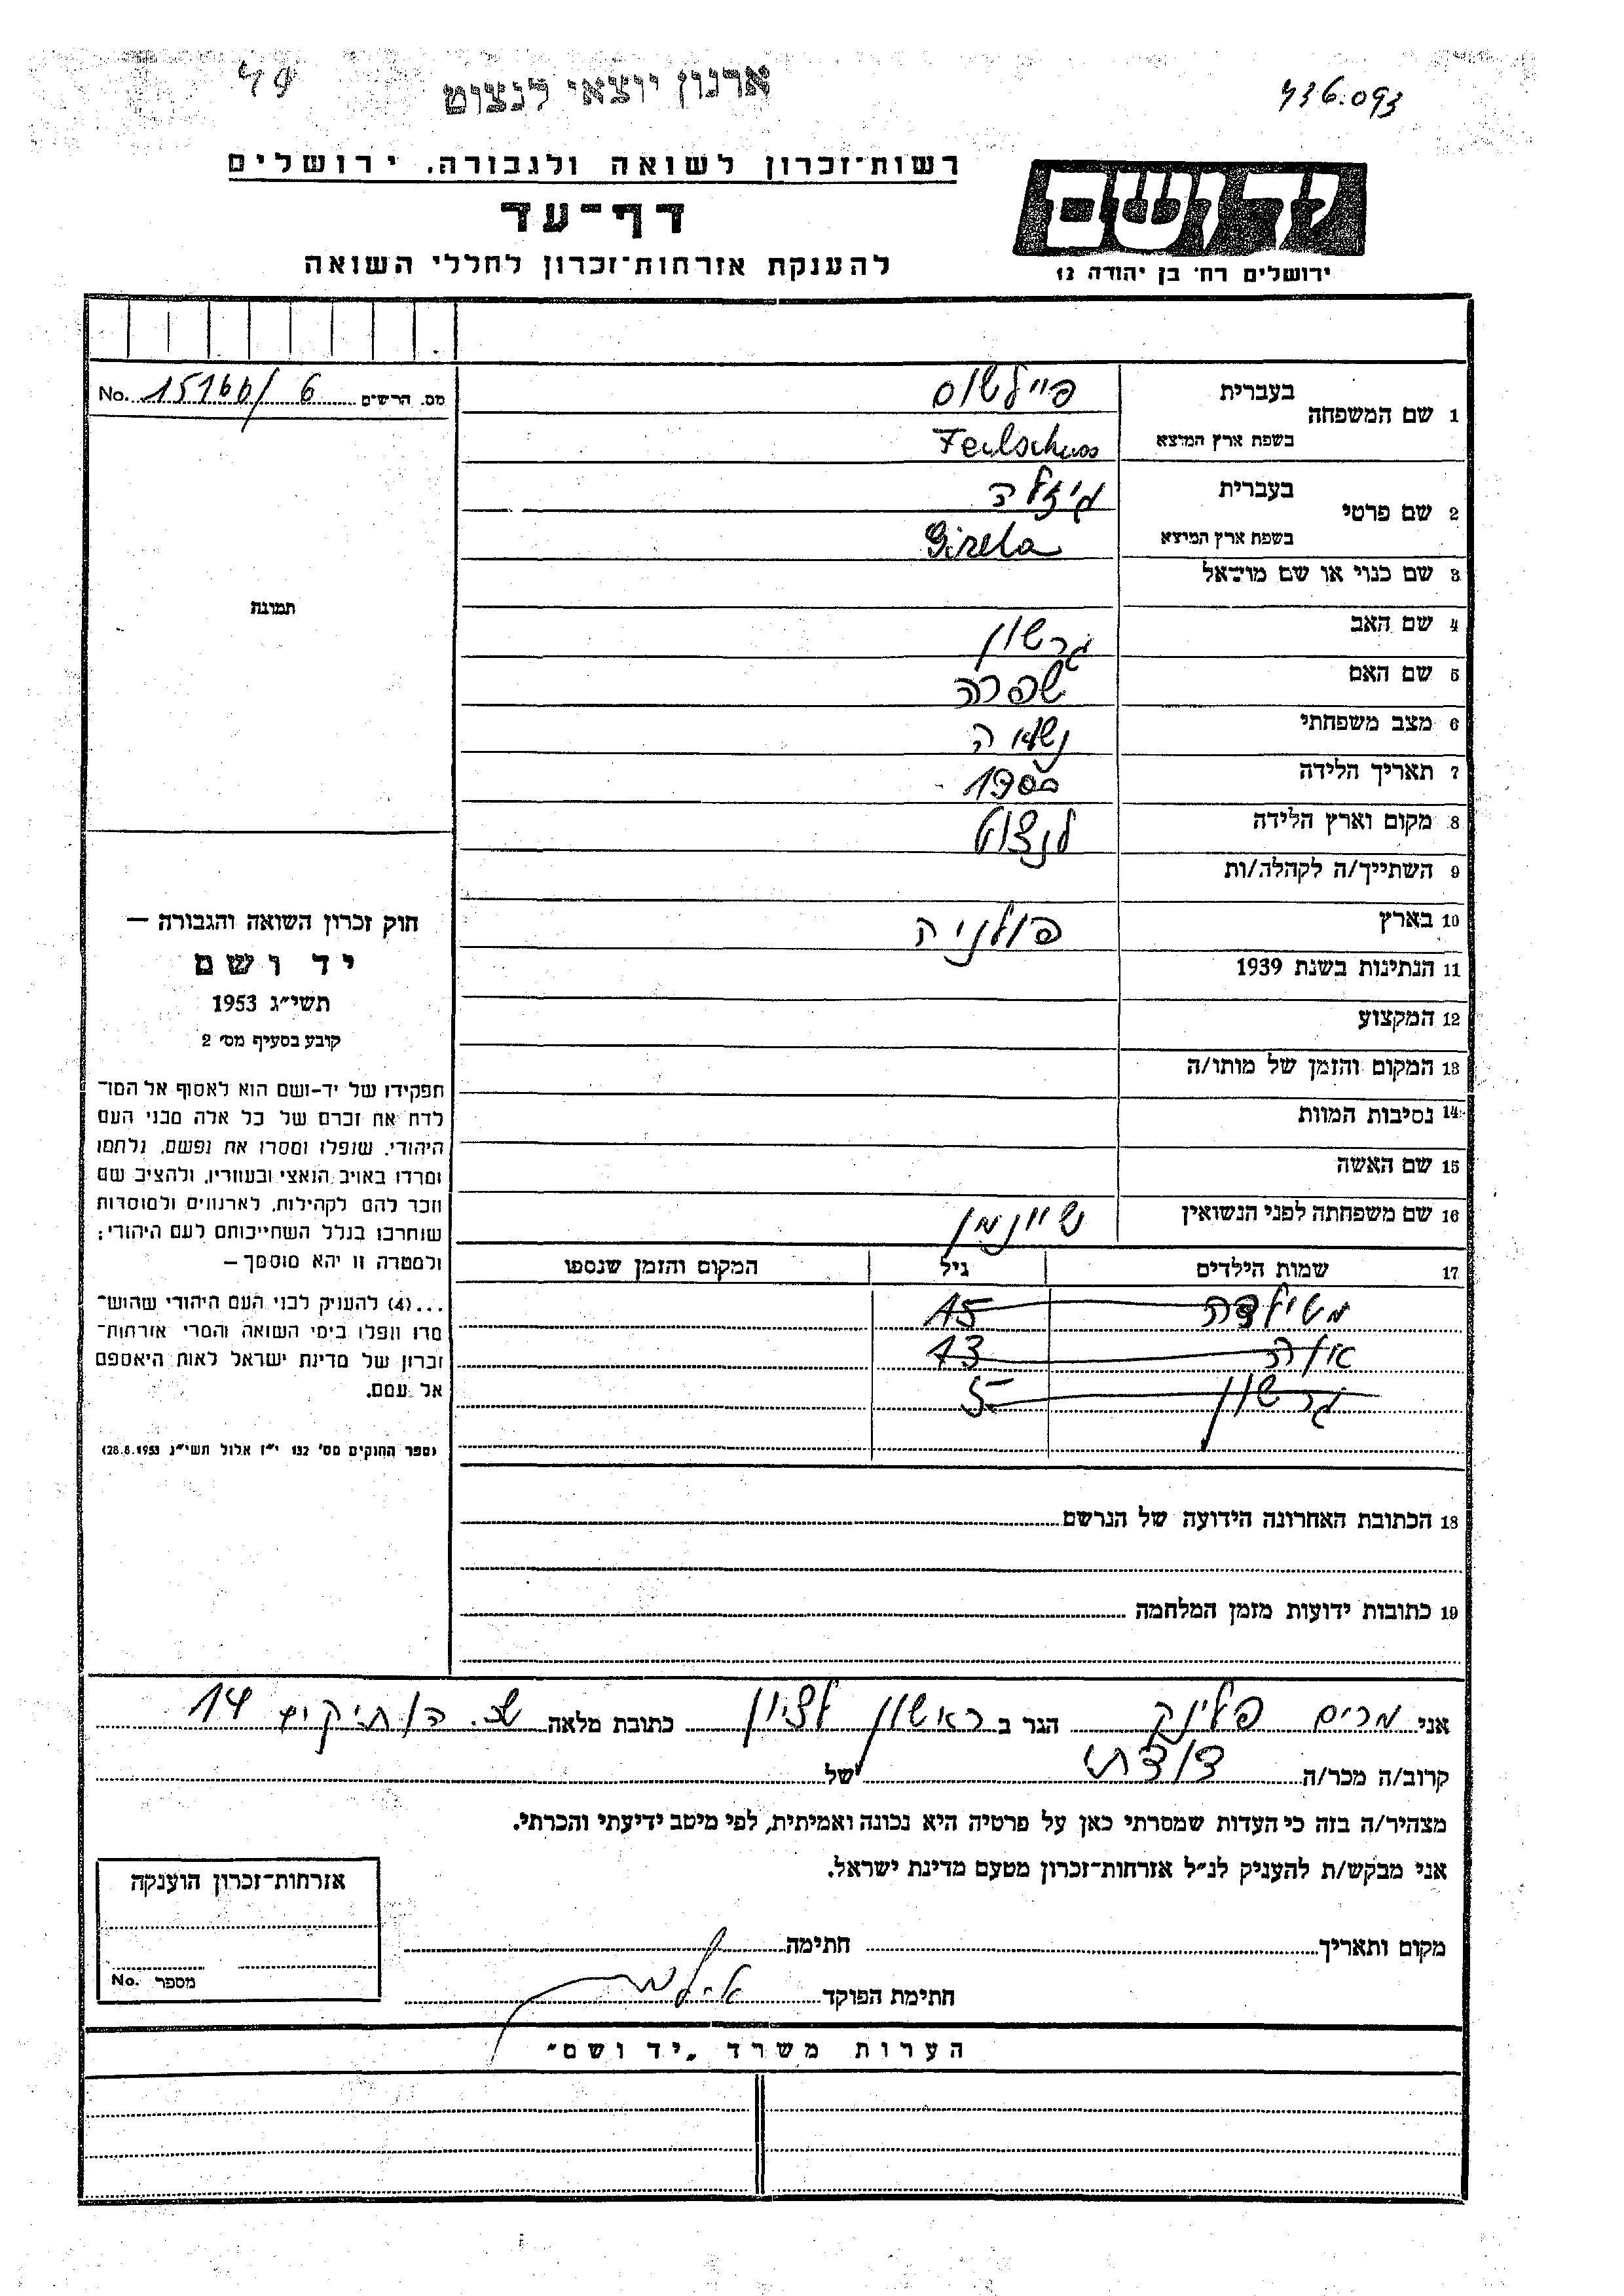 ארגון יוצאי לנצוט
436.093
רשות־זכרון לשואה ולגבורה, ירושלים
דף־עד
להענקת אזרחות־זכרון לחללי השואה
יד ושם
ירושלים רח׳ בן יהודה 12
מס. הרשים 15166/6 No.
תמונה
1 שם המשפחה
בעברית פיילשוס
בשפת ארץ המוצא Feilschuss
2 שם פרטי
בעברית גיזלה
בשפת ארץ המוצא Gizela
3 שם כנוי או שם מושאל
4 שם האב גרשון
5 שם האם שפרה
6 מצב משפחתי נשואה
7 תאריך הלידה 1900
8 מקום וארץ הלידה לנצוט
9 השתייך/ה לקהלה/ות
10 בארץ פולניה
11 הנתינות בשנת 1939
12 המקצוע
13 המקום והזמן של מותו/ה
14 נסיבות המוות
15 שם האשה
16 שם משפחתה לפני הנשואין שיינמן
17 שמות הילדים גיל המקום והזמן שנספו
מטילדה 15
אידה 13
גרשון 5
18 הכתובת האחרונה הידועה של הנרשם
19 כתובות ידועות מזמן המלחמה
חוק זכרון השואה והגבורה —
יד ושם
תשי״ג 1953
קובע בסעיף מס׳ 2
תפקידו של יד-ושם הוא לאסוף אל המו־
לדת את זכרם של כל אלה מבני העם
היהודי, שנפלו ומסרו את נפשם, נלחמו
ומרדו באויב הנאצי ובעוזריו, ולהציב שם
וזכר להם לקהילות, לארגונים ולמוסדות
שנחרבו בגלל השתייכותם לעם היהודי;
ולמטרה זו יהא מוסמך —
...(4) להעניק לבני העם היהודי שהוש־
מדו ונפלו בימי השואה והמרי אזרחות־
זכרון של מדינת ישראל לאות היאספם
אל עמם.
(ספר החוקים מס׳ 132 י״ז אלול תשי״ג 28.8.1953)
אני מרים פלינק הגר ב ראשון לציון כתובת מלאה שכ. הותיקים 14
קרוב/ה מכר/ה דודתי של
מצהיר/ה בזה כי העדות שמסרתי כאן על פרטיה היא נכונה ואמיתית, לפי מיטב ידיעתי והכרתי.
אני מבקש/ת להעניק לנ״ל אזרחות־זכרון מטעם מדינת ישראל.
מקום ותאריך חתימה
חתימת הפוקד
אזרחות־זכרון הוענקה
מספר No.
הערות משרד „יד ושם״